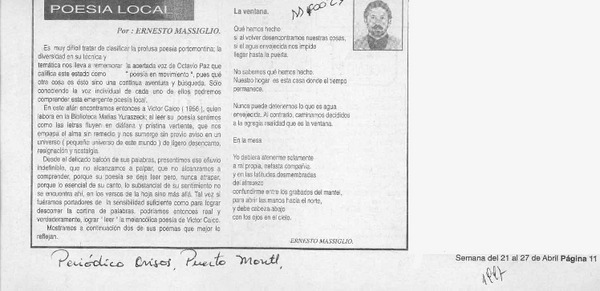 POESIA LOCAL
Por : ERNESTO MASSIGLIO.
Es muy difícil tratar de clasificar la profusa poesía portomontina; la
diversidad en su técnica y
temática nos lleva a rememorar la acertada voz de Octavio Paz que
califica este estado como " poesía en movimiento ", pues qué
otra cosa es ésto sino una continua aventura y búsqueda. Sólo
conociendo la voz individual de cada uno de ellos podremos
comprender esta emergente poesía local.
En este afán encontramos entonces a Víctor Caico ( 1956 ), quien
labora en la Biblioteca Matías Yuraszeck; al leer su poesía sentimos
como las letras fluyen en diáfana y prístina vertiente, que nos
empapa el alma sin remedio y nos sumerge sin previo aviso en un
universo ( pequeño universo de este mundo ) de ligero desencanto,
resignación y nostalgia.
Desde el delicado balcón de sus palabras, presentimos ese efluvio
indefinible, que no alcanzamos a palpar, que no alcanzamos a
comprender, porque su poesía se deja leer pero, nunca atrapar,
porque lo esencial de su canto, lo substancial de su sentimiento no
se encuentra ahí, en los versos de la hoja sino más allá. Tal vez si
fuéramos portadores de la sensibilidad suficiente como para lograr
descorrer la cortina de palabras, podríamos entonces real y
verdaderamente, lograr ' leer ' la melancólica poesía de Víctor Caico.
Mostramos a continuación dos de sus poemas que mejor lo
reflejan.
La ventana.
Qué hemos hecho
si al volver desencontramos nuestras cosas,
si el agua envejecida nos impide
llegar hasta la puerta.
No sabemos qué hemos hecho
Nuestro hogar es esta casa donde el tiempo
permanece.
Nunca puede deternernos lo que es agua
envejecida. Al contrario, caminamos decididos
a la agregia realidad que es la ventana.
En la mesa
Yo debiera atenerme solamente
a mi propia, nefasta compañía,
y en las latitudes desmembradas
del almuerzo
confundirme entre los grabados del mantel,
para abrir las manos hacia el norte,
y debe cabeza abajo
con los ojos en el cielo.
ERNESTO MASSIGLIO.
Periódico Avisos, Puerto Montt,
Semana del 21 al 27 de Abril Página 11
1997